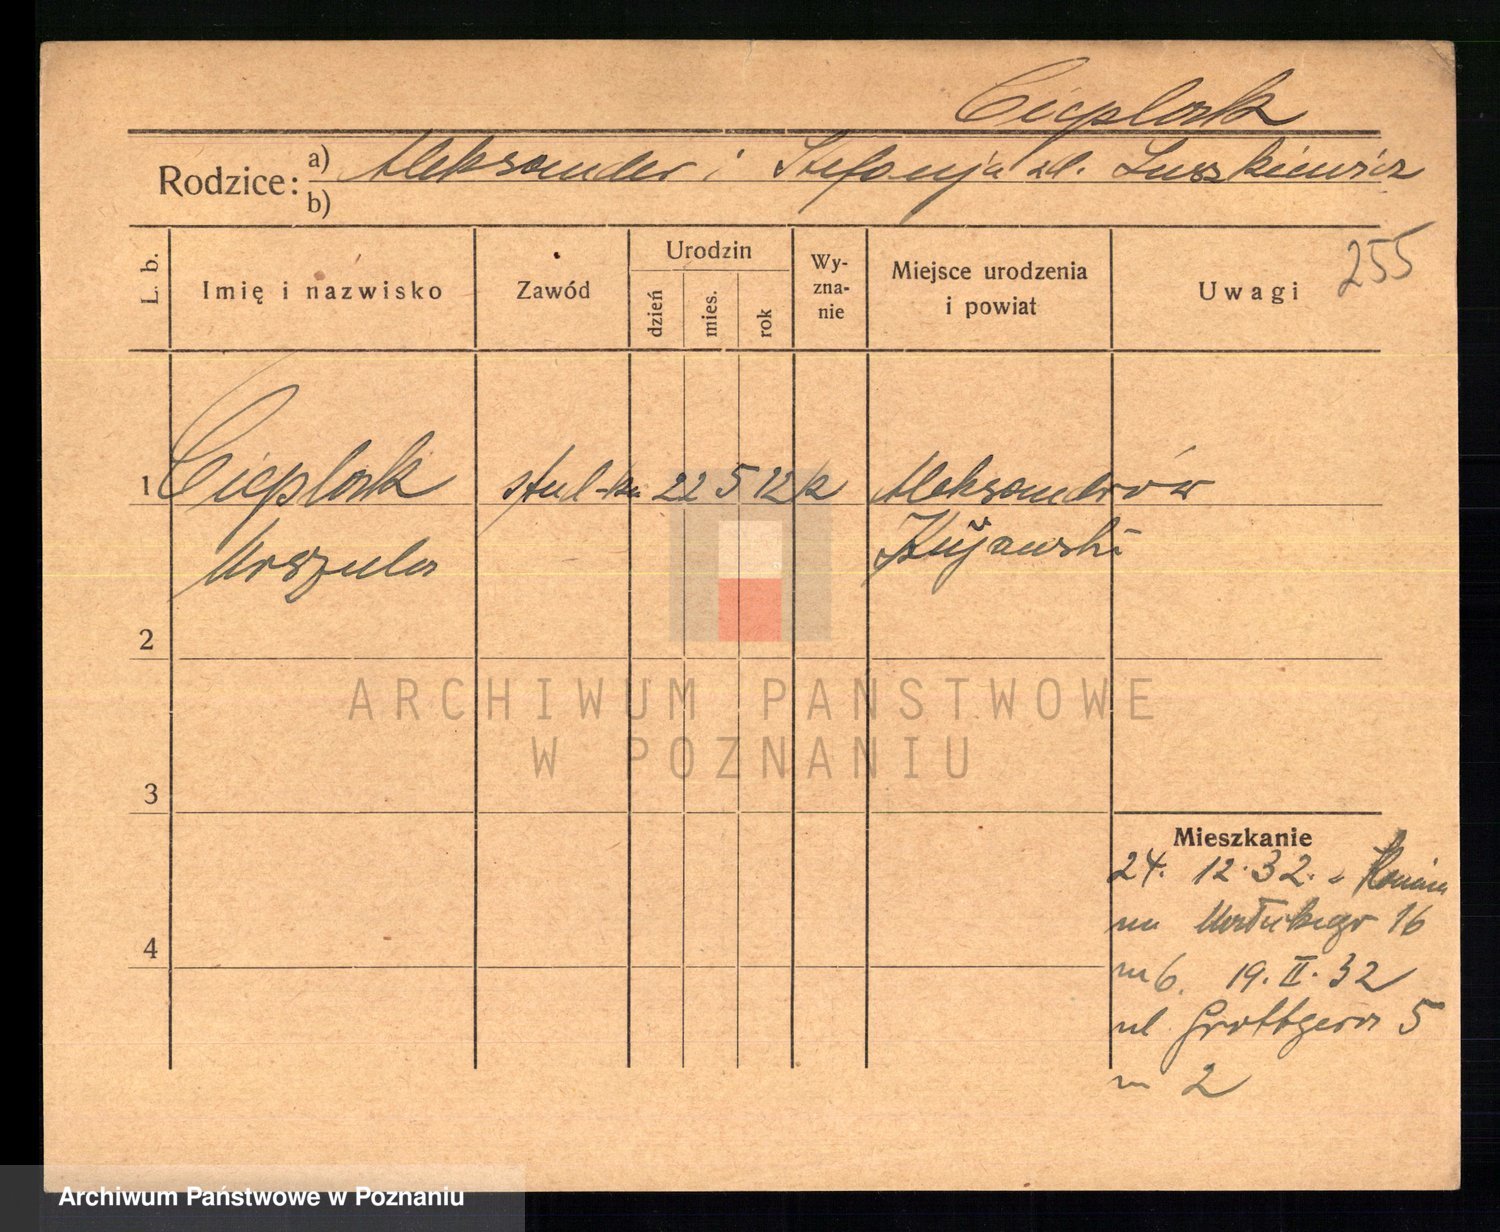 Cieplak
Rodzice: a) Aleksander i Stefanja zd. Luszkiewicz
b)
255
L. b.
Imię i nazwisko
Zawód
Urodzin
dzień
mies.
rok
Wy-
zna-
nie
Miejsce urodzenia
i powiat
Uwagi
1 Cieplak stud-ka 22 5 12 k Aleksandrów
Urszula Kujawski
2
3
4
Mieszkanie
24. 12. 32.
16
m 6. 19. II. 32
ul Grottgera 5
m 2
ARCHIWUM PAŃSTWOWE
W POZNANIU
Archiwum Państwowe w Poznaniu